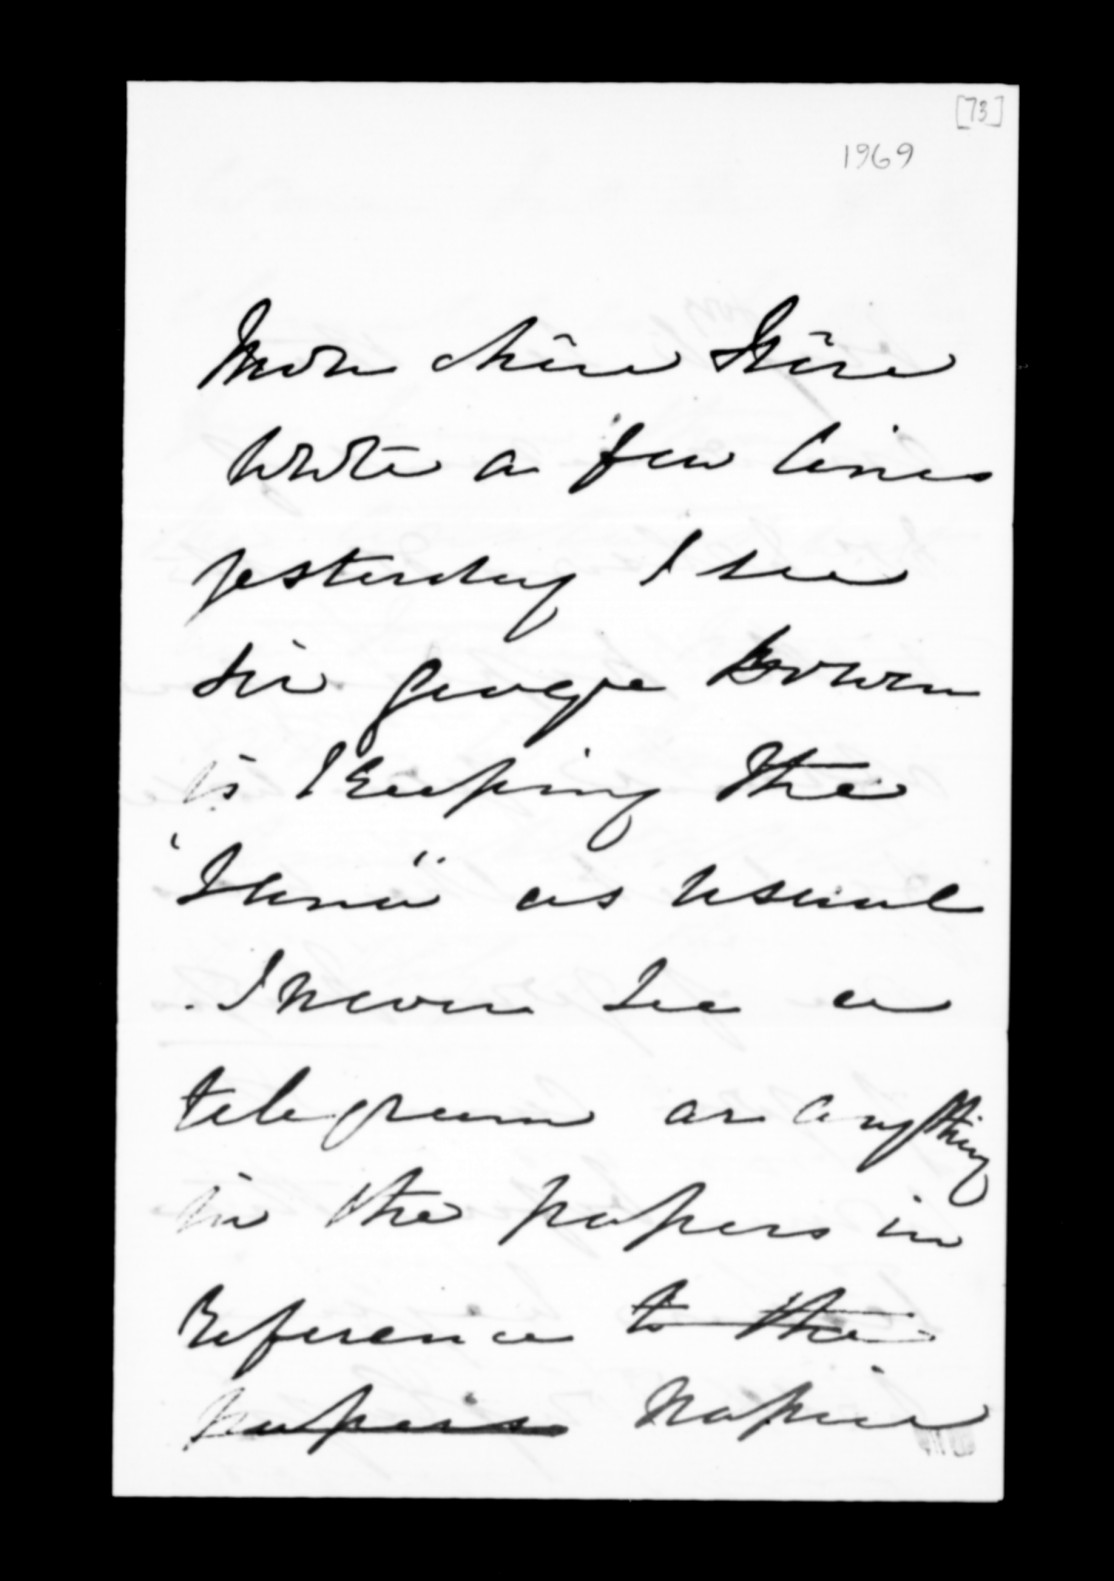 [73]
1969
Mon chère
Wrote a few lines
yesterday I see
Sir George Bowen
is Keeping the
as usual
I never see a
telegram or anything
in the papers in
reference to the
papers Napier